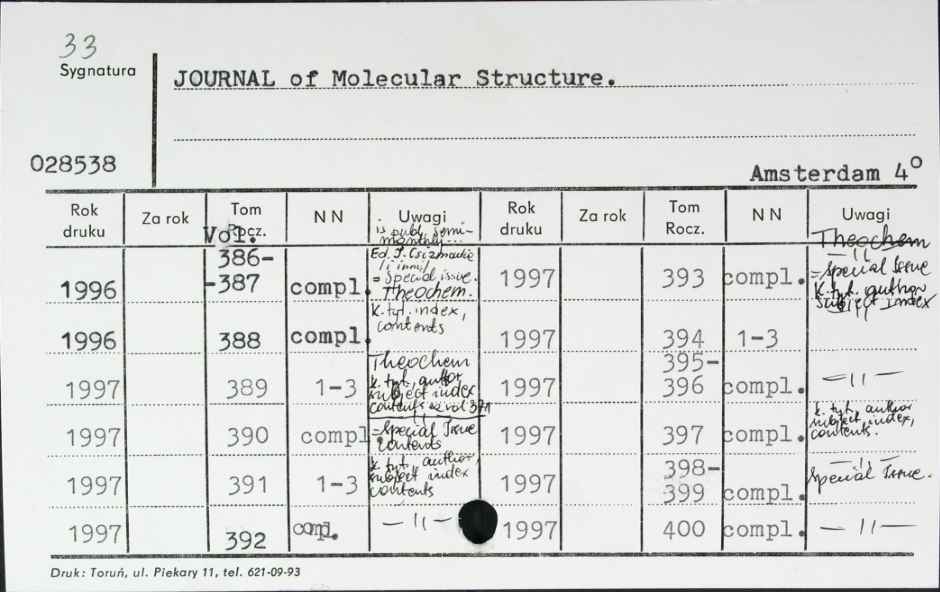 33
Sygnatura
JOURNAL of Molecular Structure.
028538
Amsterdam 4°
Rok druku Za rok Tom Rocz. NN Uwagi Rok druku Za rok Tom Rocz. NN Uwagi
Vol.
is publ. semi-
monthly...
1996 386-
-387 compl.
Ed. J. Csizmadia
i inni
= Special issue.
Theochem.
1996 388 compl.
k. tyt. index,
contents
1997 389 1-3
Theochem
k. tyt., author
subject index
contents
1997 390 compl.
= Special Issue
contents
1997 391 1-3
k. tyt. author,
subject index
contents
1997 392 compl. — 11 —
1997 393 compl.
Theochem
— 11 —
= Special Issue
k. tyt. author
subject index
1997 394 1-3
— 11 —
1997 395-
396 compl. — 11 —
1997 397 compl.
k. tyt. author
subject index,
contents.
1997 398-
399 compl.
— 11 —
Special Issue.
1997 400 compl. — 11 —
Druk: Toruń, ul. Piekary 11, tel. 621-09-93